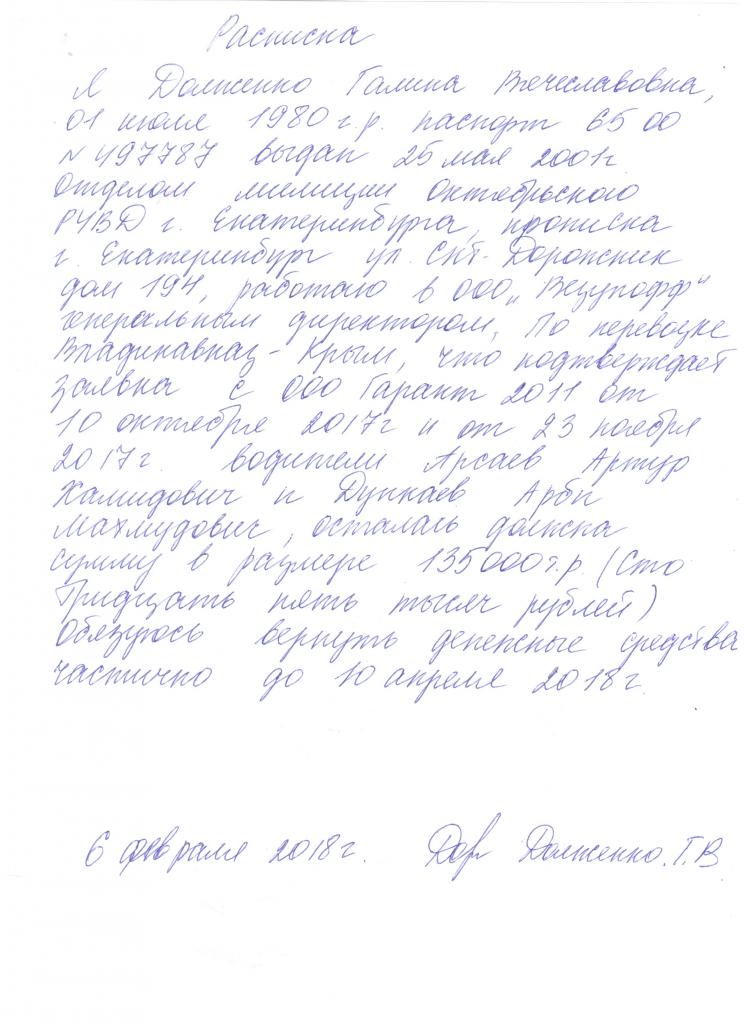 Расписка
Я Долженко Галина Вячеславовна,
01 июля 1980 г.р. паспорт 65 00
№ 497787 выдан 25 мая 2001г
Отделом милиции Октябрьского
РУВД г. Екатеринбурга, прописка
г. Екатеринбург ул. Скт- Дорожник
дом 194, работаю в ООО „Везупофф"
генеральным директором, По перевозке
Владикавказ - Крым, что подтверждает
заявка с ООО Гарант 2011 от
10 октября 2017г и от 23 ноября
2017г. водители Арсаев Артур
Хамидович и Дукаев Арби
Махмудович, осталась должна
сумму в размере 135000 т.р. (Сто
Тридцать пять тысяч рублей)
Обязуюсь вернуть денежные средства
частично до 10 апреля 2018г
6 февраля 2018г. Долженко. Г.В